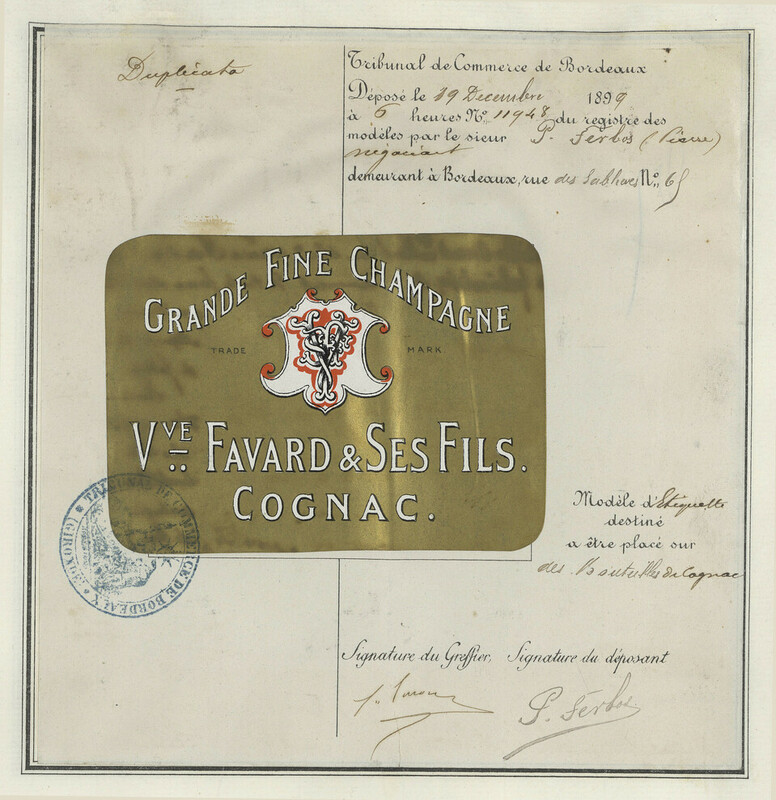 Duplicata
Tribunal de Commerce de Bordeaux
Déposé le 29 Decembre 1899
à 6 heures No. 11948 du registre des
modèles par le sieur P. Ferbos (Pierre)
négociant
demeurant à Bordeaux, rue des No. 65
GRANDE FINE CHAMPAGNE
TRADE MARK
VVE FAVARD & SES FILS.
COGNAC.
TRIBUNAL DE COMMERCE DE BORDEAUX
(GIRONDE)
Modèle d'Etiquette
destiné
a être placé sur
des Bouteilles de Cognac
Signature du Greffier, Signature du déposant
P. Ferbos